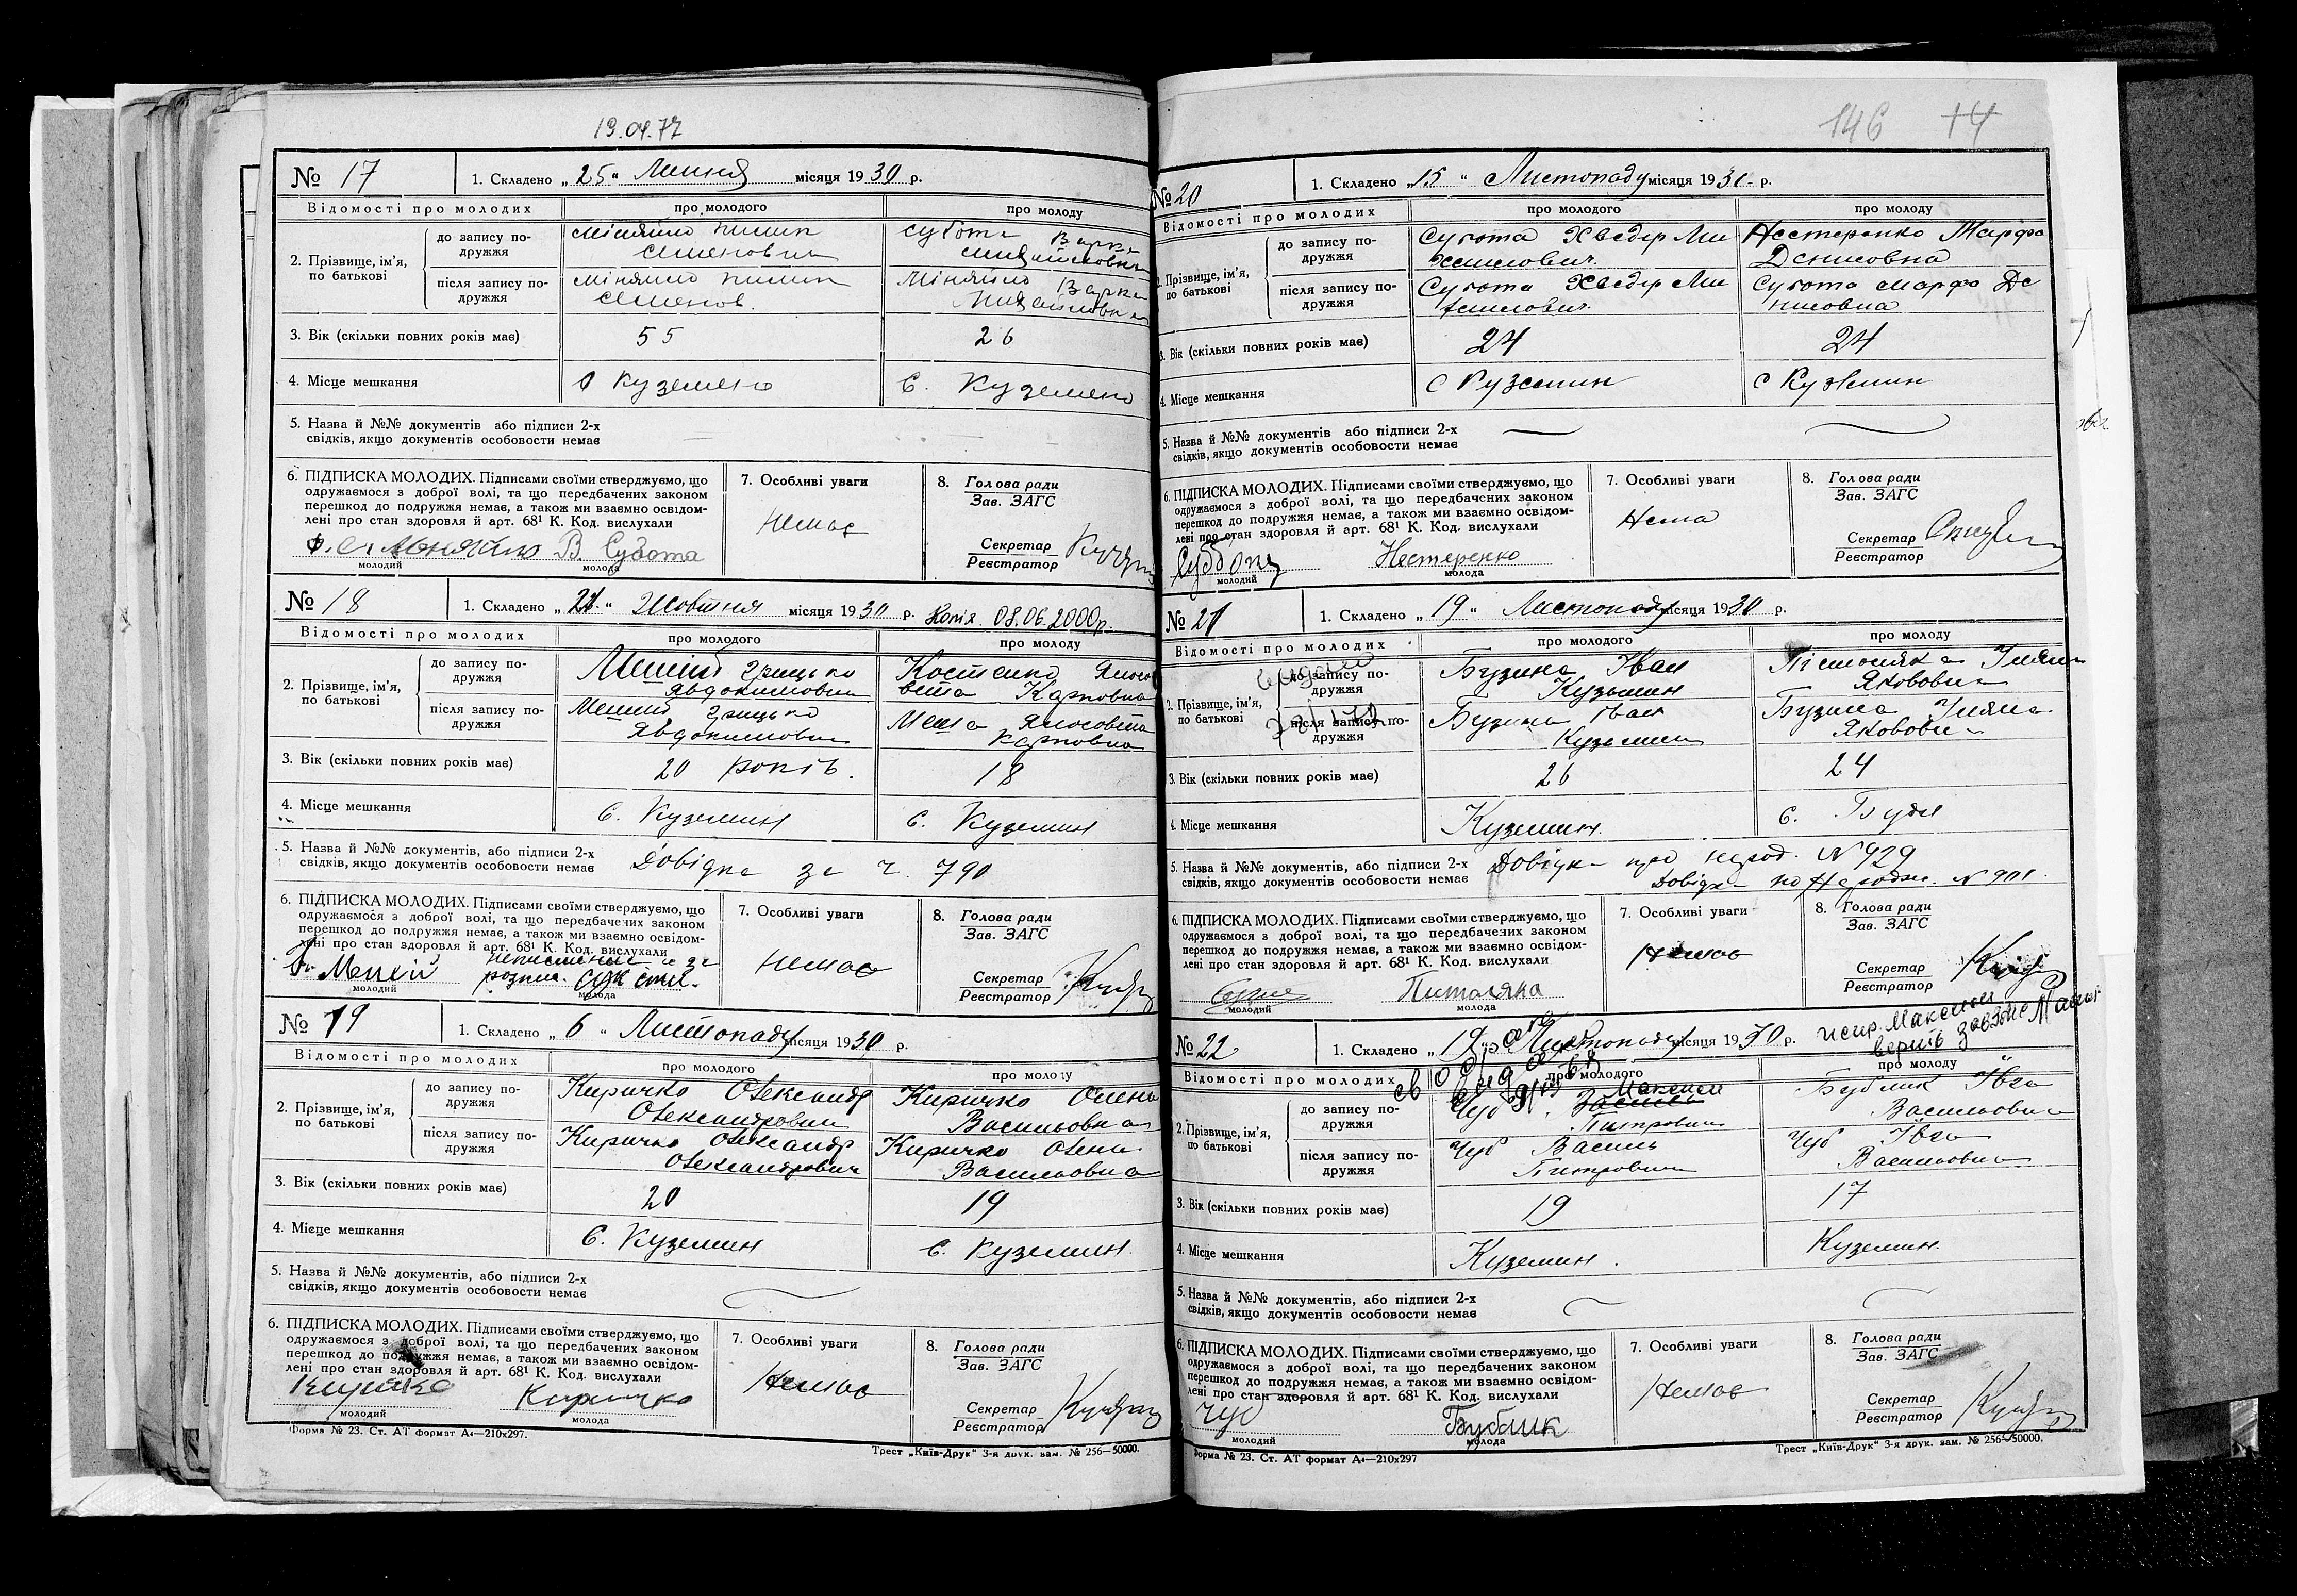 19.04.77
№ 17
1. Складено „ 25 " Липня місяця 1930 р.
Відомості про молодих
про молодого
про молоду
2. Прізвище, ім'я, по батькові
до запису по-
дружжя
Міняйло Пилип
Семенович
Субота Варка
Михайловна
після запису по-
дружжя
Міняйло Пилип
Семенов.
Міняйло Варка
Михайловна
3. Вік (скільки повних років має)
55
26
4. Місце мешкання
С Куземено
С. Куземено
5. Назва й №№ документів або підписи 2-х
свідків, якщо документів особовости немає
6. ПІДПИСКА МОЛОДИХ. Підписами своїми стверджуємо, що
одружаємося з доброї волі, та що передбачених законом
перешкод до подружжя немає, а також ми взаємно освідом-
лені про стан здоровля й арт. 68¹ К. Код. вислухали
В. Субота
молодий
молода
7. Особливі уваги
Немає
8. Голова ради
Зав. ЗАГС
Секретар
Реєстратор
№ 18
1. Складено „ 21 " Жовтня місяця 1930 р. Копія 08.06.2000р.
Відомості про молодих
про молодого
про молоду
2. Прізвище, ім'я,
по батькові
до запису по-
дружжя
Грицько
Явдокимович
Костенко
Карповна
після запису по-
дружжя
Грицько
Явдокимович
Карповна
3. Вік (скільки повних років має)
20 років.
18
4. Місце мешкання
с. Куземин
с. Куземин
5. Назва й №№ документів, або підписи 2-х
свідків, якщо документів особовости немає
Довідка за ч. 790
6. ПІДПИСКА МОЛОДИХ. Підписами своїми стверджуємо, що
одружаємося з доброї волі, та що передбачених законом
перешкод до подружжя немає, а також ми взаємно освідом-
лені про стан здоровля й арт. 68¹ К. Код. вислухали
молодий
молода
7. Особливі уваги
Немає
8. Голова ради
Зав. ЗАГС
Секретар
Реєстратор
№ 19
1. Складено „ 6 " Листопаду місяця 1930 р.
Відомості про молодих
про молодого
про молоду
2. Прізвище, ім'я,
по батькові
до запису по-
дружжя
Киричко Олександр
Олександрович
Киричко Олена
Васильовна
після запису по-
дружжя
Киричко Олександр
Олександрович
Киричко Олена
Васильовна
3. Вік (скільки повних років має)
20
19
4. Місце мешкання
С. Куземин
С. Куземин
5. Назва й №№ документів, або підписи 2-х
свідків, якщо документів особовости немає
6. ПІДПИСКА МОЛОДИХ. Підписами своїми стверджуємо, що
одружаємося з доброї волі, та що передбачених законом
перешкод до подружжя немає, а також ми взаємно освідом-
лені про стан здоровля й арт. 68¹ К. Код. вислухали
Киричко
Киричко
молодий
молода
7. Особливі уваги
Немає
8. Голова ради
Зав. ЗАГС
Секретар
Реєстратор
Форма № 23. Ст. АТ формат А4—210x297.
Трест „Київ-Друк" 3-я друк. зам. № 256—50000.
146 14
№ 20
1. Складено „ 15 " Листопаду місяця 1930 р.
Відомості про молодих
про молодого
про молоду
2. Прізвище, ім'я,
по батькові
до запису по-
дружжя
Субота Хведір Ми
хайлович
Нестеренко Марфа
Денисовна
після запису по-
дружжя
Субота Хведір Ми
хайлович
Субота Марфа Де
нисовна
3. Вік (скільки повних років має)
24
24
4. Місце мешкання
с Куземин
с Куземин
5. Назва й №№ документів або підписи 2-х
свідків, якщо документів особовости немає
6. ПІДПИСКА МОЛОДИХ. Підписами своїми стверджуємо, що
одружаємося з доброї волі, та що передбачених законом
перешкод до подружжя немає, а також ми взаємно освідом-
лені про стан здоровля й арт. 68¹ К. Код. вислухали
Нестеренко
молодий
молода
7. Особливі уваги
Нема
8. Голова ради
Зав. ЗАГС
Секретар
Реєстратор
№ 21
1. Складено „ 19 " Листопаду місяця 1930 р.
Відомості про молодих
про молодого
про молоду
2. Прізвище, ім'я,
по батькові
до запису по-
дружжя
Бузина Іван
Кузьмич
Уляна
Якововна
після запису по-
дружжя
Бузина Іван
Кузьмич
Бузина Уляна
Якововна
3. Вік (скільки повних років має)
26
24
4. Місце мешкання
Куземин.
с. Буди
5. Назва й №№ документів, або підписи 2-х
свідків, якщо документів особовости немає
Довідка про народ. №929
Довідка по Народж. № 901.
6. ПІДПИСКА МОЛОДИХ. Підписами своїми стверджуємо, що
одружаємося з доброї волі, та що передбачених законом
перешкод до подружжя немає, а також ми взаємно освідом-
лені про стан здоровля й арт. 68¹ К. Код. вислухали
молодий
молода
7. Особливі уваги
Немає
8. Голова ради
Зав. ЗАГС
Секретар
Реєстратор
№ 22
1. Складено „ 19 " Листопаду місяця 1930 р.
испр. Максим
верить
Відомості про молодих
про молодого
про молоду
2. Прізвище, ім'я,
по батькові
до запису по-
дружжя
Максим
Чуб Василь
Питрович
Бублик Івга
Васильовна
після запису по-
дружжя
Чуб Василь
Питрович
Чуб Івга
Васильовна
3. Вік (скільки повних років має)
19
17
4. Місце мешкання
Куземин.
Куземин.
5. Назва й №№ документів, або підписи 2-х
свідків, якщо документів особовости немає
6. ПІДПИСКА МОЛОДИХ. Підписами своїми стверджуємо, що
одружаємося з доброї волі, та що передбачених законом
перешкод до подружжя немає, а також ми взаємно освідом-
лені про стан здоровля й арт. 68¹ К. Код. вислухали
Чуб
Бублик
молодий
молода
7. Особливі уваги
Немає
8. Голова ради
Зав. ЗАГС
Секретар
Реєстратор
Форма № 23. Ст. АТ формат А4—210x297
Трест „Київ-Друк" 3-я друк. зам. № 256—50000.